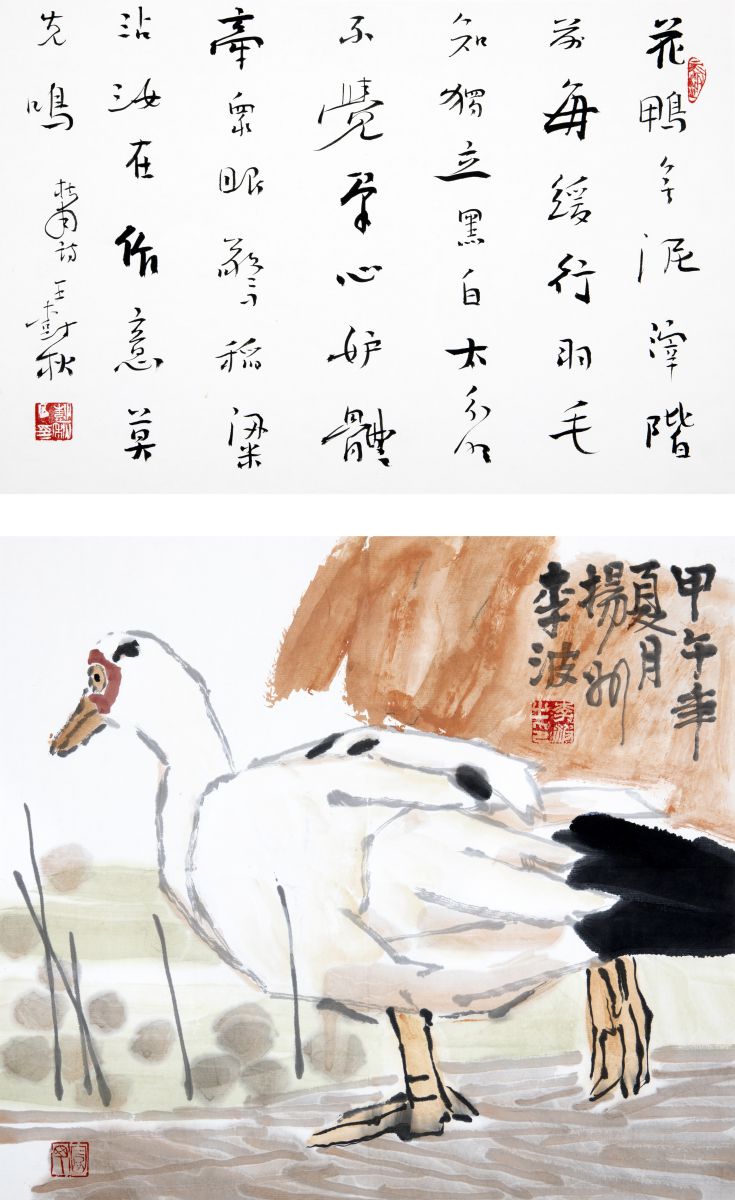 花鴨无泥滓階
前每緩行羽毛
知獨立黑白太分明
不覺羣心妒體
牽眾眼驚稻粱
沾汝在作意莫
先鳴 杜甫詩 王樹秋
甲午年
夏月
揚州
李波